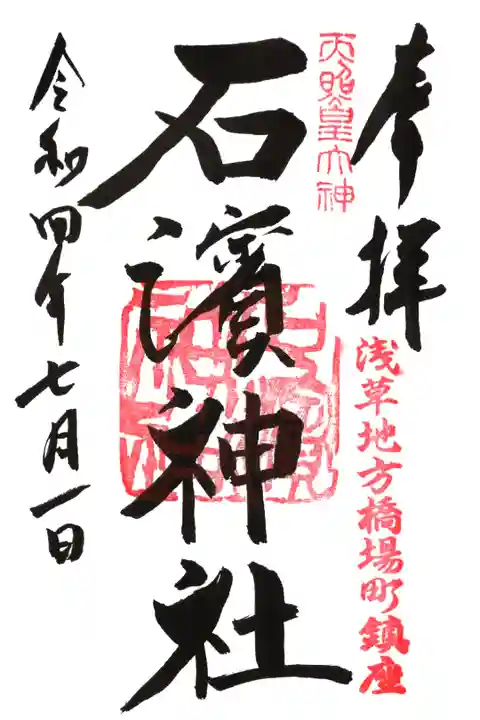 奉拝
天照皇大神
浅草地方橋場町鎮座
石濱神社
令和四年七月一日